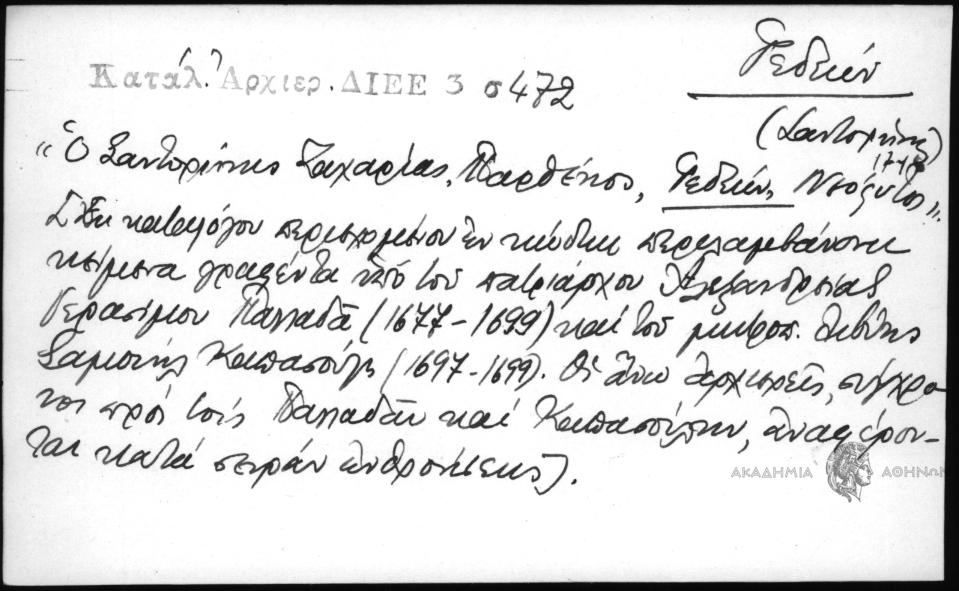 Γεδεών
Κατάλ. Ἀρχιερ. ΔΙΕΕ 3 σ 472
(Σαντορίνης)
«Ὁ Σαντορίνης Ζαχαρίας, Παρθένιος, Γεδεών,
[Ἐκ καταλόγου περιεχομένου ἐν κώδικι περιλαμβάνοντι
κείμενα γραφέντα ὑπό τοῦ πατριάρχου Ἀλεξανδρείας
Γερασίμου Παλλαδᾶ (1677-1699) καί τοῦ μητροπ. Λιβύης
Σαμουήλ Καπασούλη (1697-1699). Οἱ ἄνω ἀρχιερεῖς, σύγχρο-
νοι πρός τούς Παλλαδᾶν καί Καπασούλην, ἀναφέρον-
ται κατά σειράν ἐνθρονίσεως].
ΑΚΑΔΗΜΙΑ ΑΘΗΝΩΝ